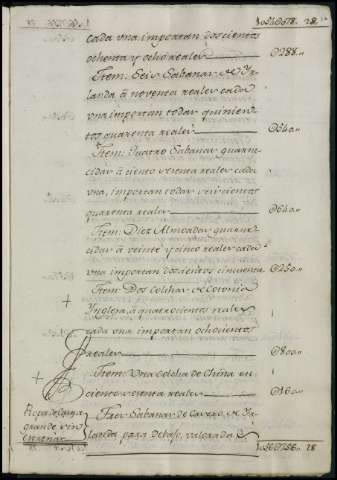 cada vna importan doscientos
ochenta y ocho reales
@288..
Ittem: Seis Sabanas, de Yr-
landa à noventa reales cada
vna importan todas quinien-
tos quarenta reales
@540..
Ittem: Quatro Sabanas guarne-
cidas à ciento y sesenta reales cada
vna, importan todas seiscientos
quarenta reales
@640..
Ittem: Diez Almoadas guarne-
cidas à veinte y cinco reales cada
vna importan doscientos cinquenta
@250..
Ittem: Dos Colchas de Cotonia
Ynglesa, à quatrocientos reales
cada vna importan ochocientos
reales
@800..
Ittem: Vna Colcha de China en
ciento y sesenta reales
@160..
Tres Sabanas de Carero, de Yr-
landa para debajo, valoradas